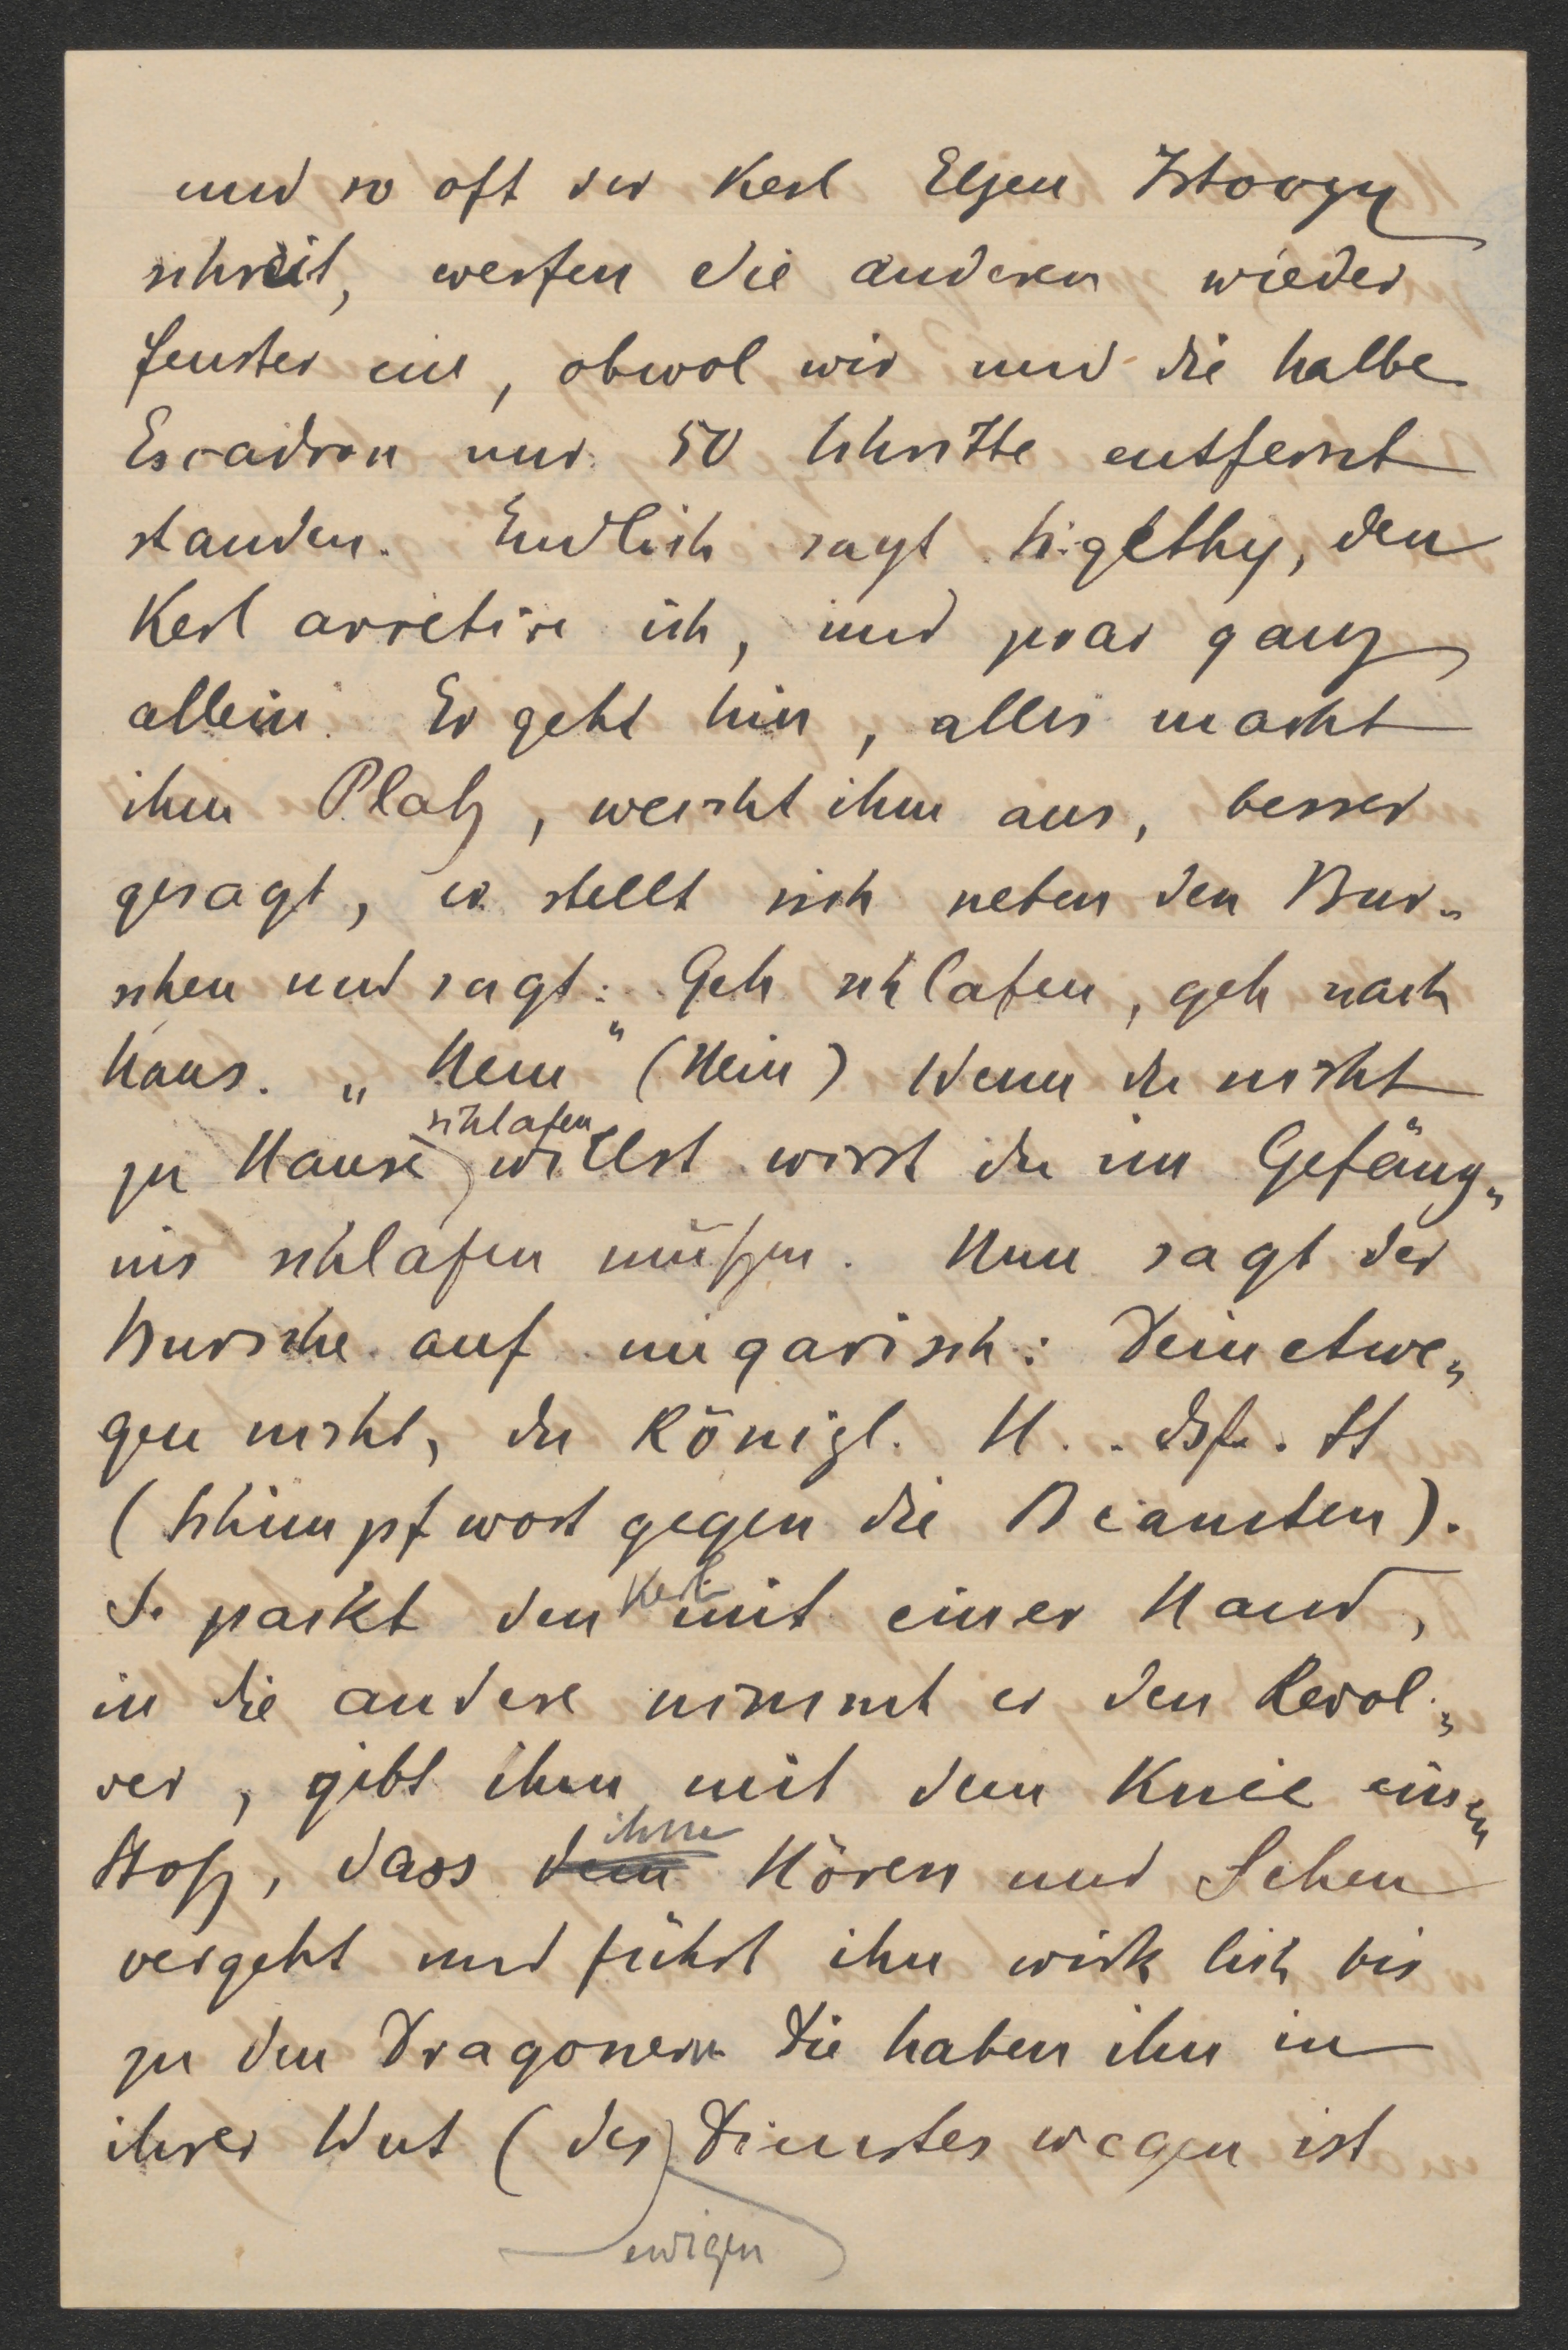 und so oft der Kerl Eljen Istoczy
schreit, werfen die anderen wieder
fenster ein, obwol wir und die halbe
Escadron nur 50 Schritte entfernt
standen. Endlich sagt Szigethy, den
Kerl arretire ich, und zwar ganz
allein. Er geht hin, alles macht
ihm Platz, weicht ihm aus, besser
gesagt, er stellt sich neben den Bur„
schen und sagt: Geh schlafen, geh nach
Haus. „Nem" (Nein) Wenn du nicht
zu Hause schlafen willst wirst du im Gefäng„
nis schlafen müßen. Nun sagt der
Bursche auf ungarisch: Deinetwe„
gen nicht, du Königl. H... St
(Schimpfwort gegen die Beamten).
S. packt den Kerl mit einer Hand,
in die andere nimmt er den Revol„
ver, gibt ihm mit dem Knie einen
Stoß, dass dem ihm Hören und Sehen
vergeht und führt ihn wirklich bis
zu den Dragonern Die haben ihn in
ihrer Wut (des Dienstes wegen ist
ewigen